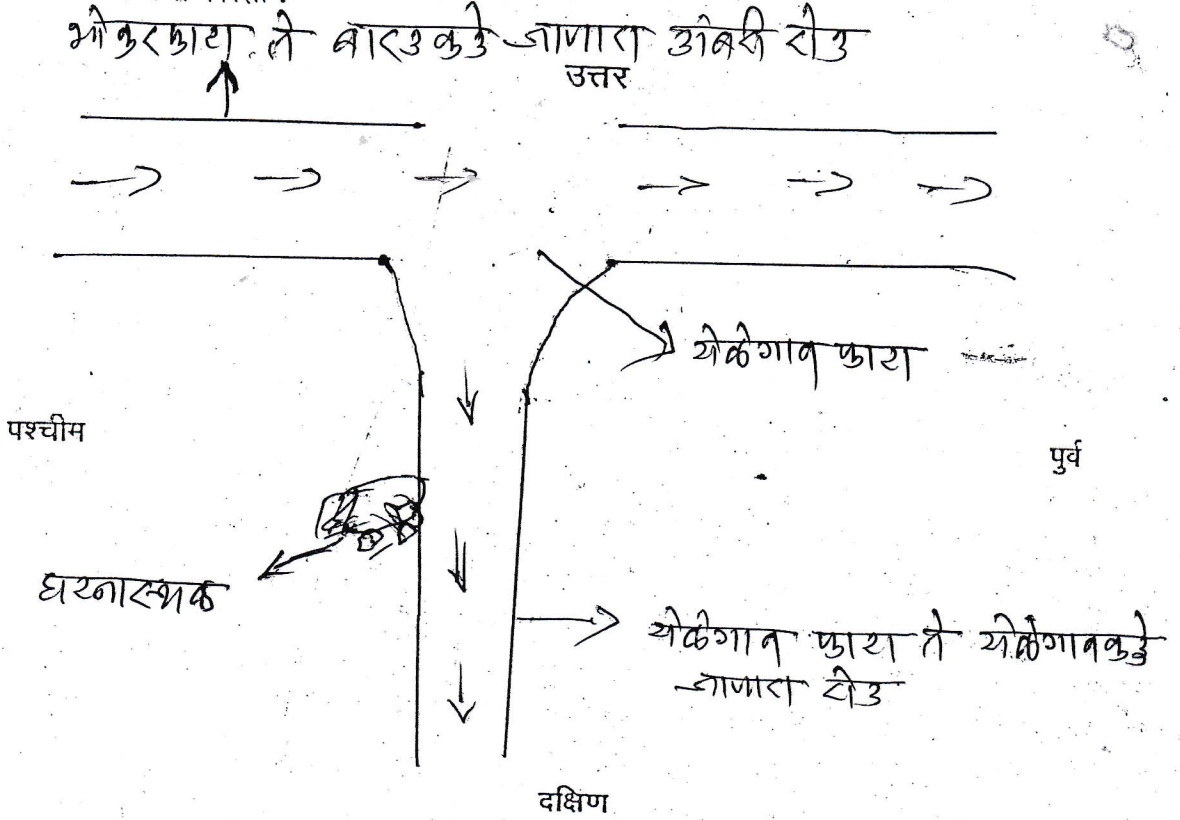 भोकुरफाटा ते बारडकडे जाणारा डांबरी रोड
उत्तर
येळेगाव फाटा
पश्चीम
पुर्व
घटनास्थळ
येळेगाव फाटा ते येळेगावकडे
जाणारा रोड
दक्षिण